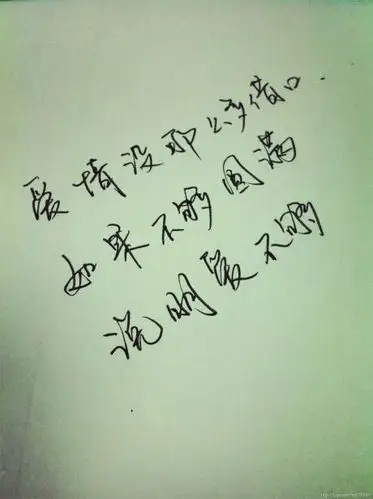 爱情没那么多借口
如果不够圆满
说明爱不够